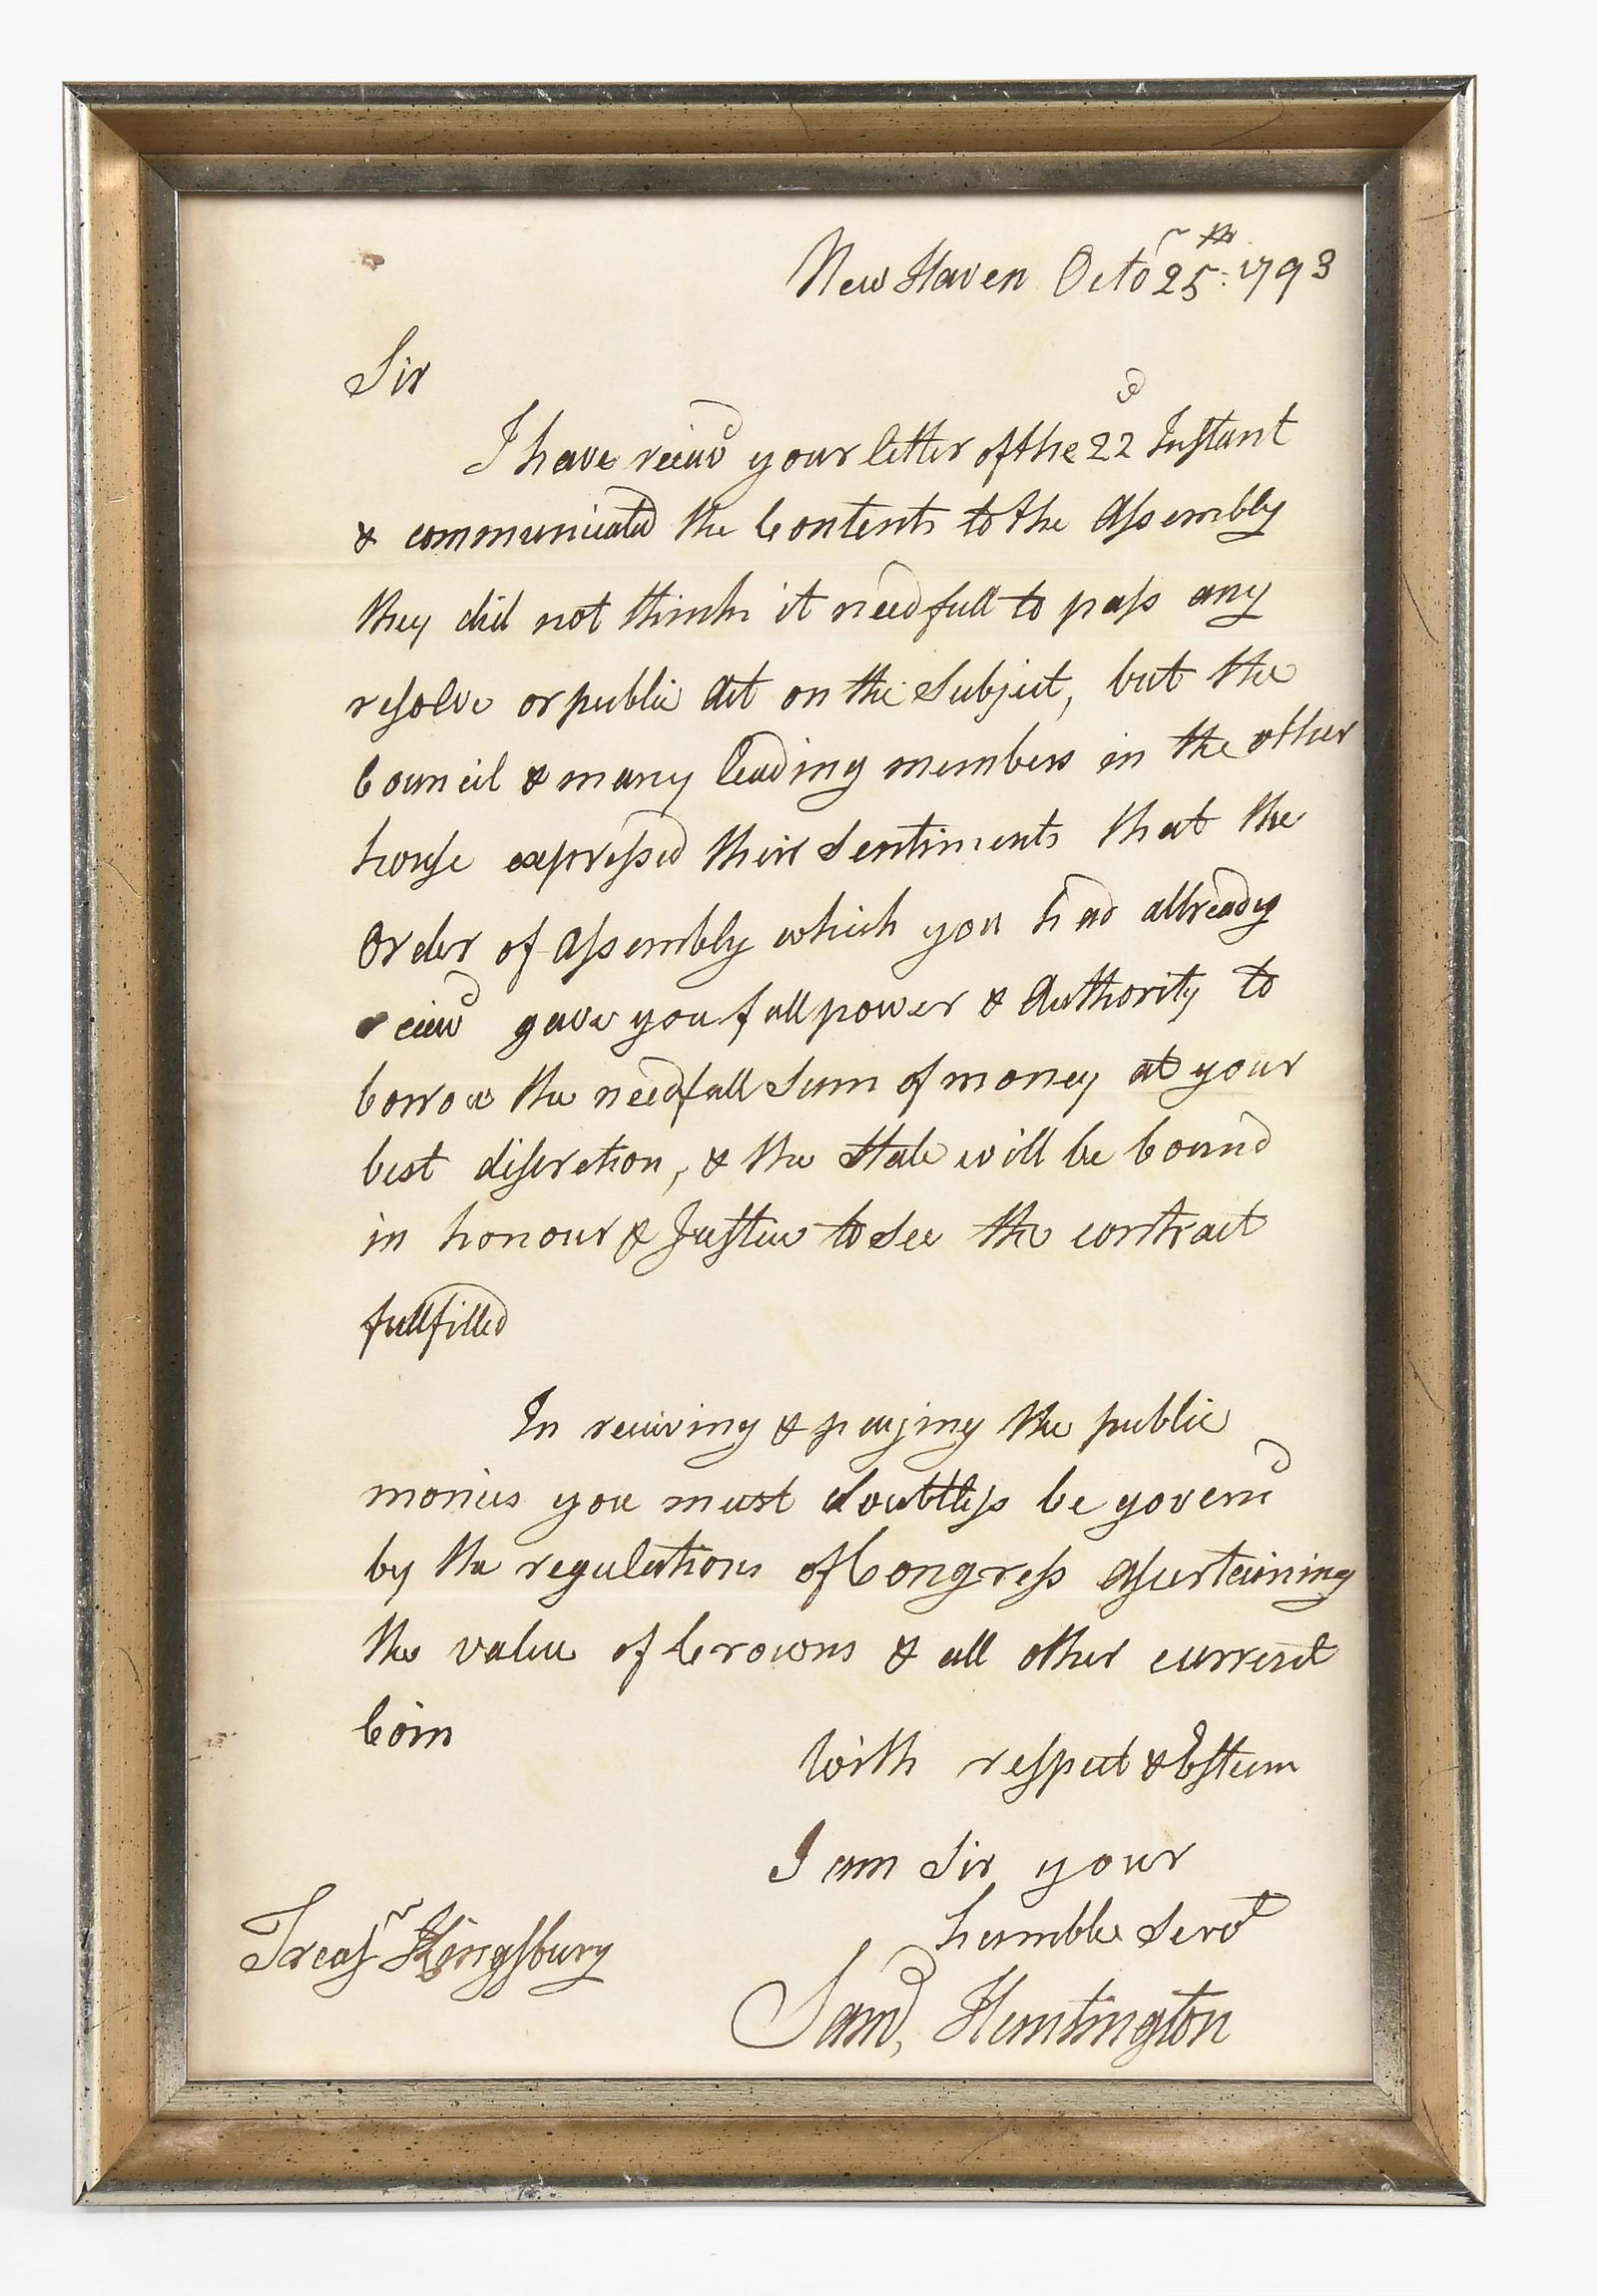 New Haven Octo^r 25^th: 1793
Sir
I have reciev^d your letter of the 22^d Instant
& communicated the Contents to the Assembly
they did not think it needfull to pass any
resolve or public Act on the Subject, but the
Council & many leading members in the other
house expressed their Sentiments that the
Order of Assembly which you had allready
reciev^d gave you full power & Authority to
borrow the needfull Sum of money at your
best discretion, & the State will be bound
in honour & Justice to See the contract
fullfilled
In recieving & paying the public
monies you must doubtless be govern^d
by the regulations of Congress assertaining
the value of Crowns & all other current
Coin
With respect & Esteem
I am Sir your
humble Serv^t
Treas^r Kingsbury
Sam^l, Huntington